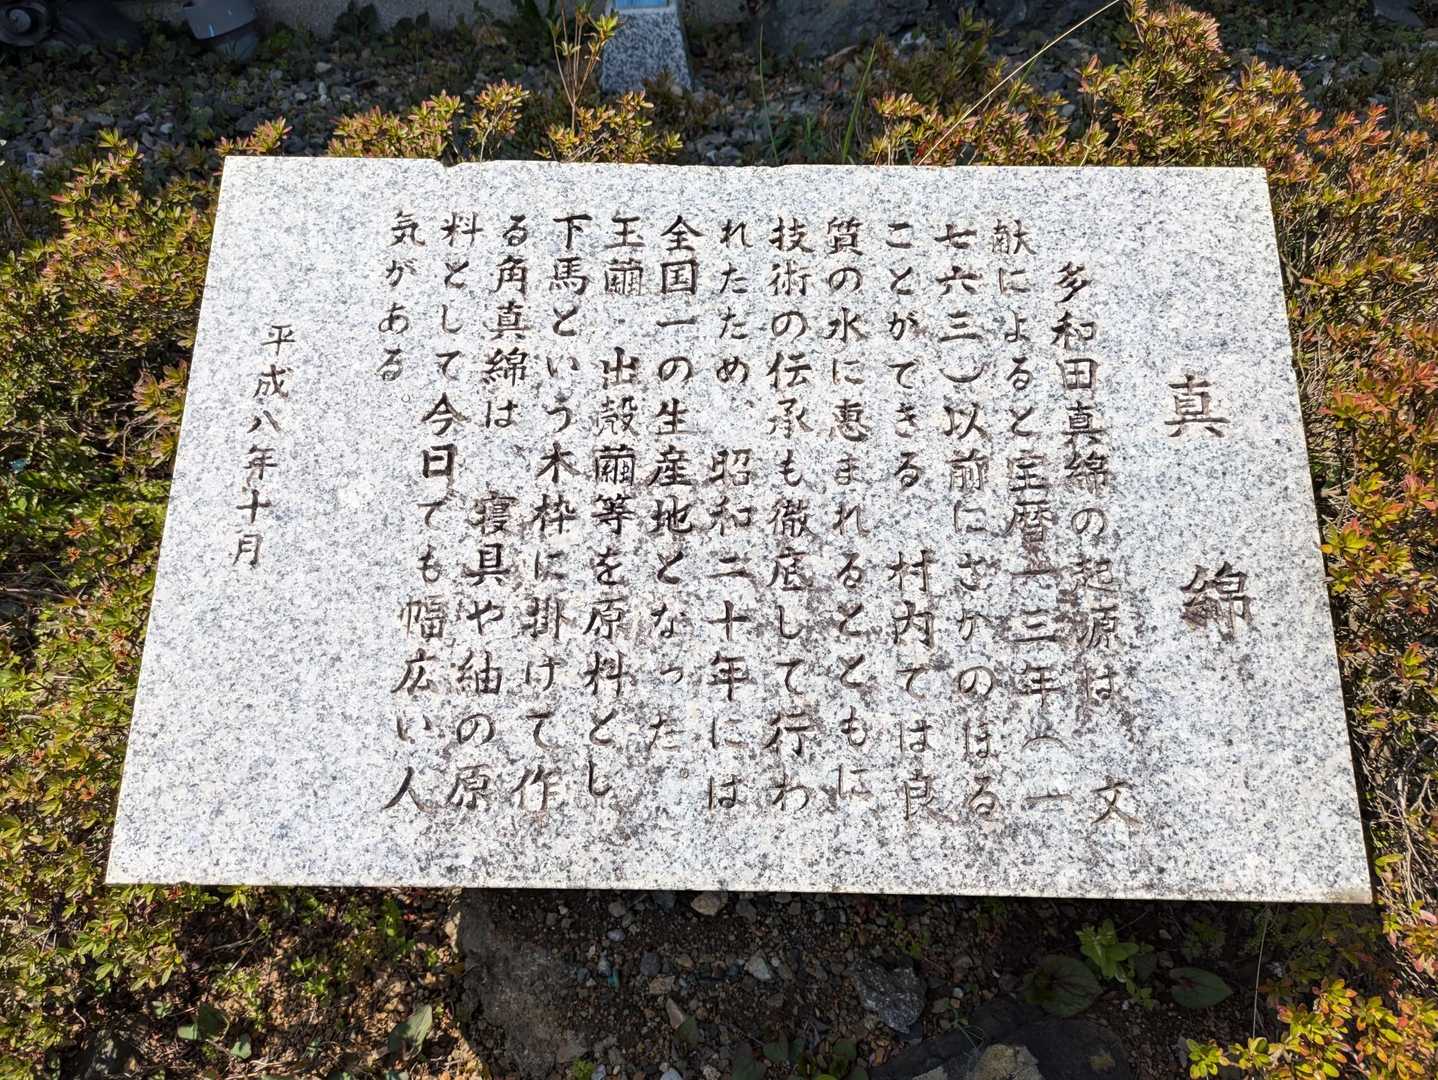 真綿
多和田真綿の起源は 文
献によると宝暦一三年（一
七六三）以前にさかのぼる
ことができる 村内では良
質の水に恵まれるとともに
技術の伝承も徹底して行わ
れたため、昭和二十年には
全国一の生産地となった。
玉繭 出殻繭等を原料とし
下馬という木枠に掛けて作
る角真綿は 寝具や紬の原
料として今日でも幅広い人
気がある。
平成八年十月